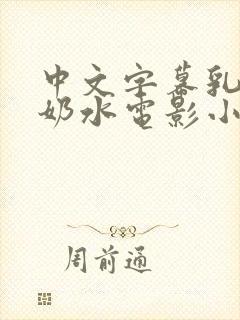 中文字幕乳
奶水电影小
周前通